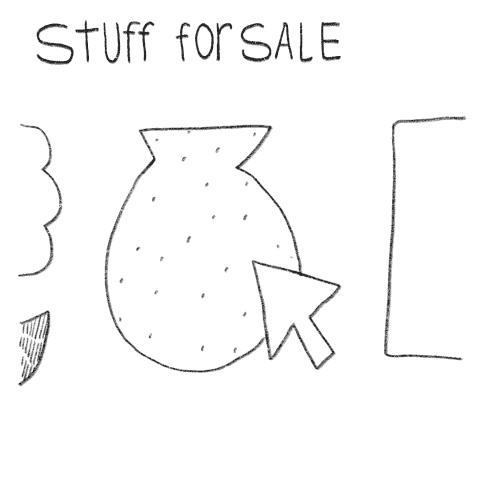 Stuff for SALE